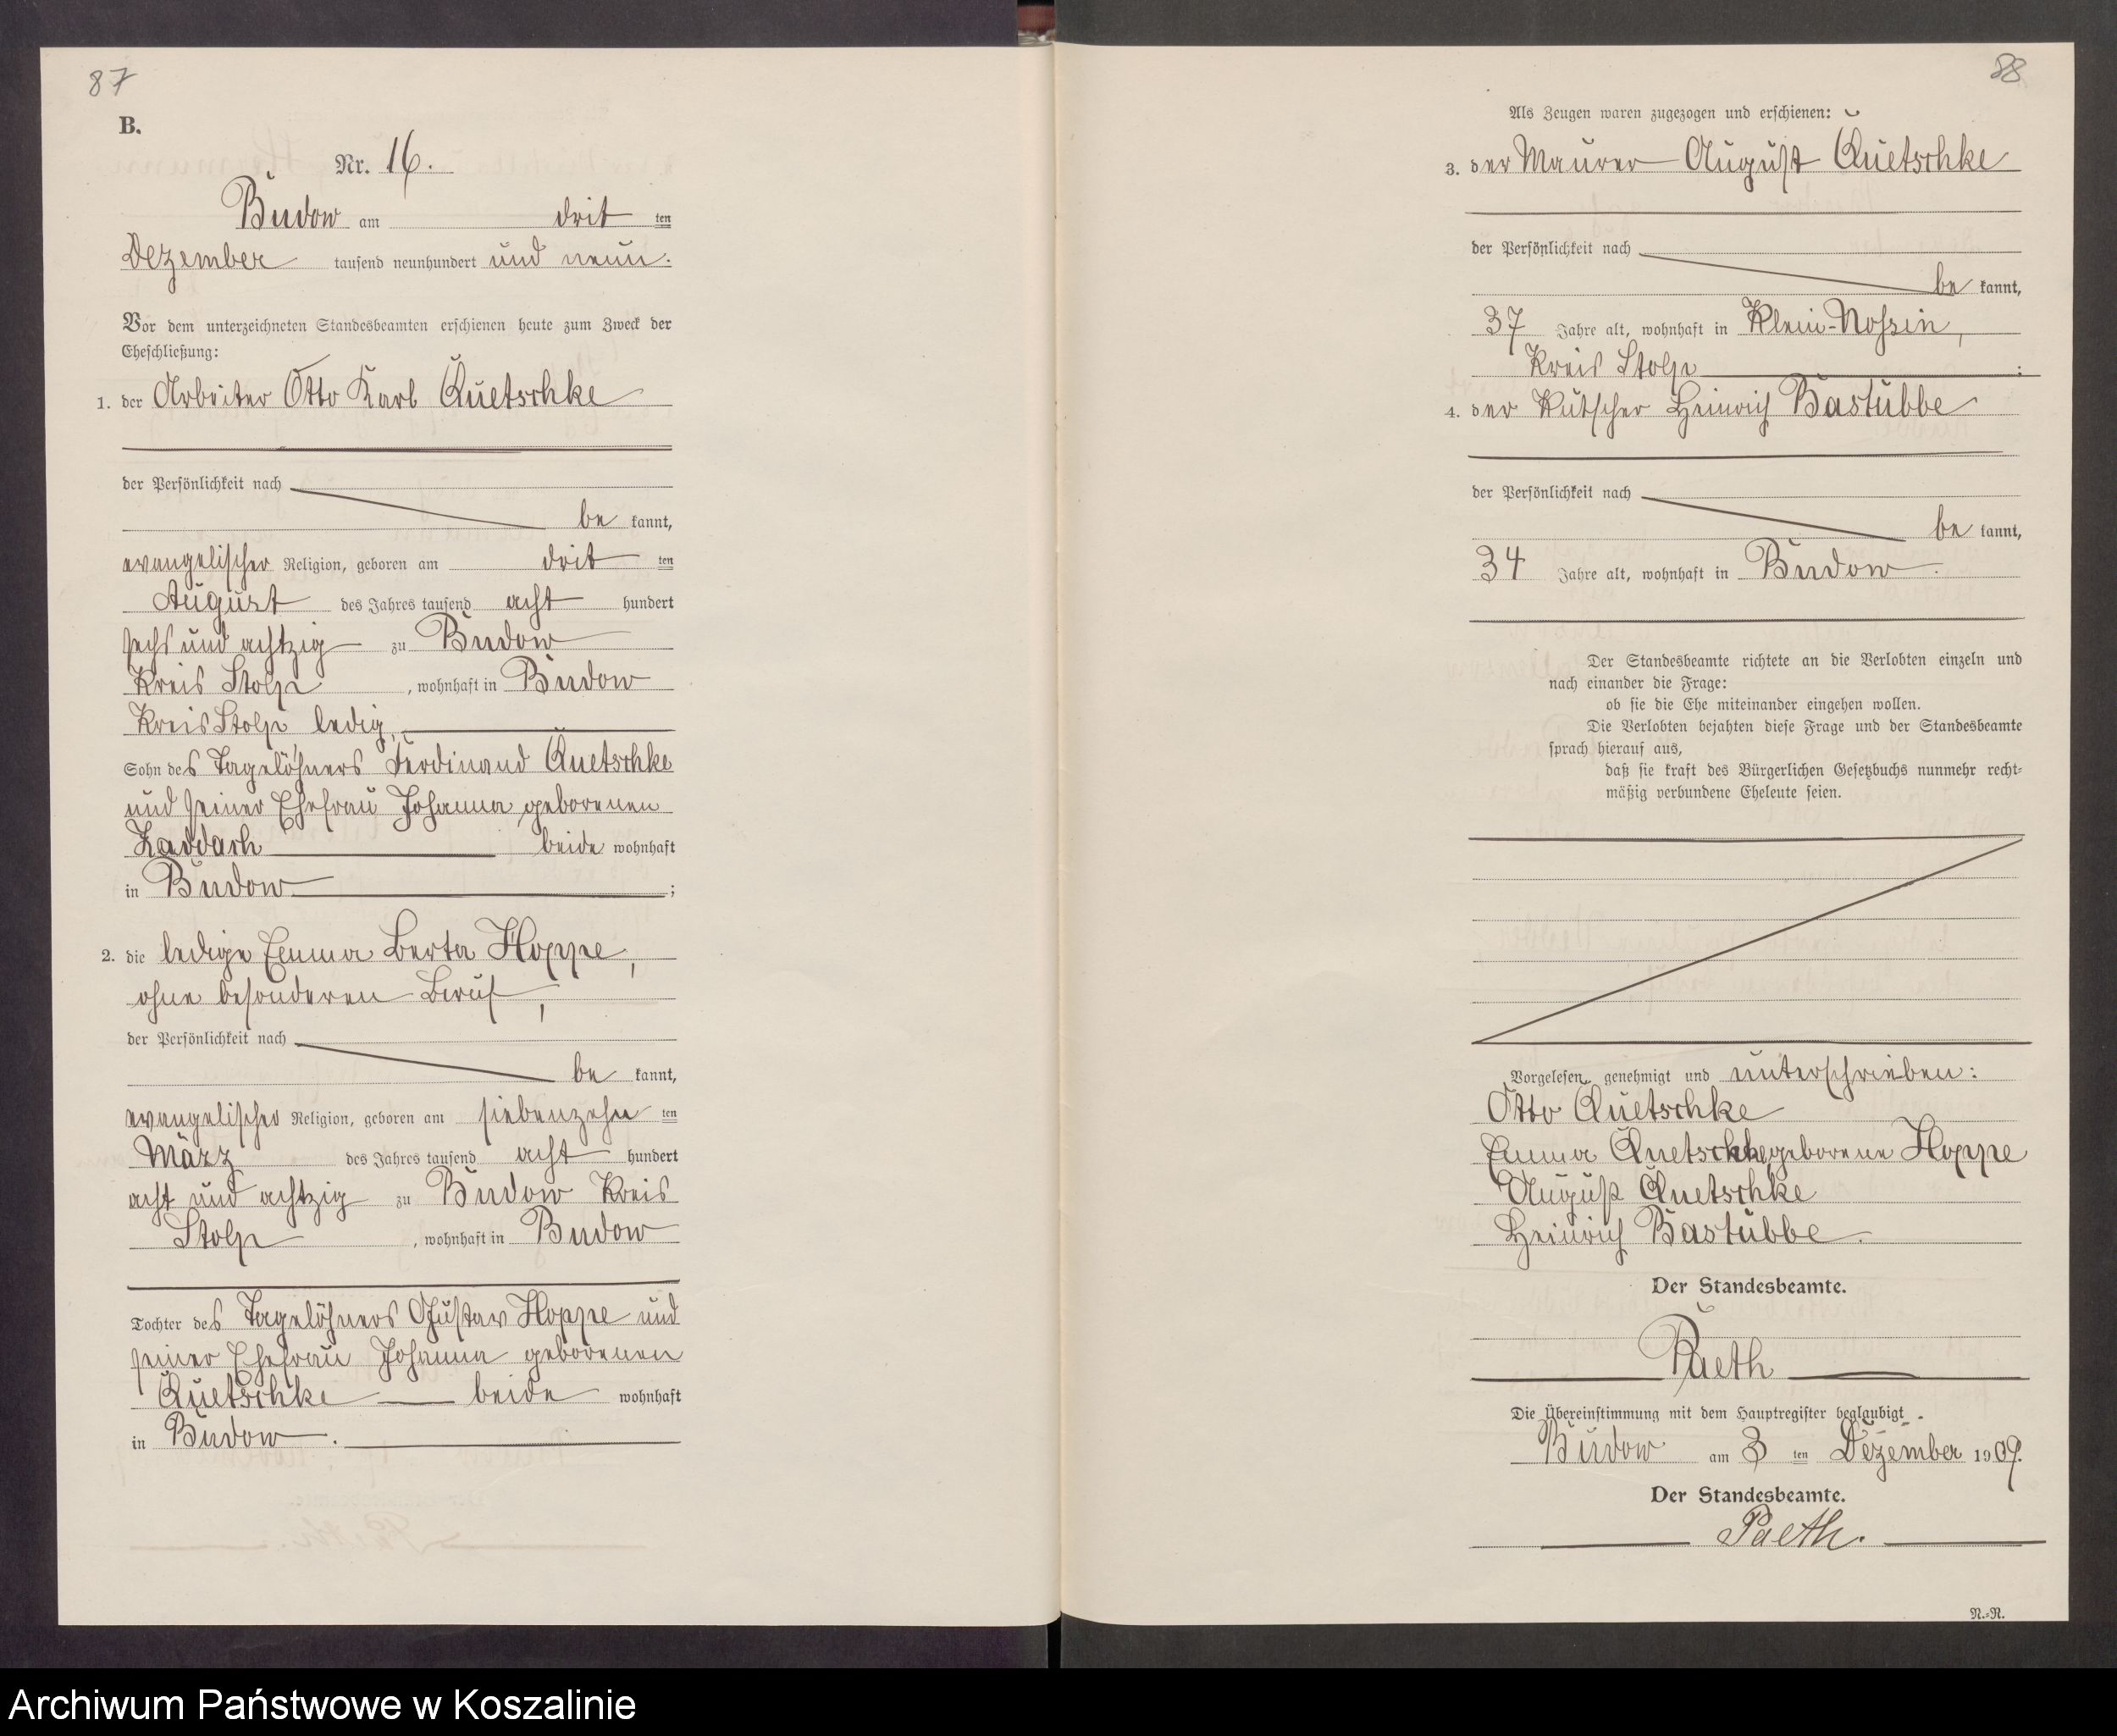 87
B.
Nr. 16.
Budow am drit ten
Dezember tausend neunhundert und neun.
Vor dem unterzeichneten Standesbeamten erschienen heute zum Zweck der
Eheschließung:
1. der Arbeiter Otto Karl Quetschke
der Persönlichkeit nach
be kannt,
evangelischer Religion, geboren am drit ten
August des Jahres tausend acht hundert
sechs und achtzig zu Budow
Kreis Stolp , wohnhaft in Budow
Kreis Stolp ledig,
Sohn des Tagelöhners Ferdinand Quetschke
und seiner Ehefrau Johanna geborenen
Zaddach beide wohnhaft
in Budow ;
2. die ledige Emma Berta Hoppe,
ohne besonderen Beruf,
der Persönlichkeit nach
be kannt,
evangelischer Religion, geboren am siebenzehn ten
März des Jahres tausend acht hundert
acht und achtzig zu Budow Kreis
Stolp , wohnhaft in Budow
Tochter des Tagelöhners Gustav Hoppe und
seiner Ehefrau Johanna geborenen
Quetschke beide wohnhaft
in Budow.
88
Als Zeugen waren zugezogen und erschienen:
3. der Maurer August Quetschke
der Persönlichkeit nach
be kannt,
37 Jahre alt, wohnhaft in Klein-Nossin,
Kreis Stolp ;
4. der Kutscher Heinrich Bastubbe
der Persönlichkeit nach
be kannt,
34 Jahre alt, wohnhaft in Budow.
Der Standesbeamte richtete an die Verlobten einzeln und
nach einander die Frage:
ob sie die Ehe miteinander eingehen wollen.
Die Verlobten bejahten diese Frage und der Standesbeamte
sprach hierauf aus,
daß sie kraft des Bürgerlichen Gesetzbuchs nunmehr recht-
mäßig verbundene Eheleute seien.
Vorgelesen, genehmigt und unterschrieben:
Otto Quetschke
Emma Quetschke geborene Hoppe
August Quetschke
Heinrich Bastubbe.
Der Standesbeamte.
Paeth
Die Übereinstimmung mit dem Hauptregister beglaubigt
Budow am 3 ten Dezember 1909.
Der Standesbeamte.
Paeth.
N.-R.
Archiwum Państwowe w Koszalinie